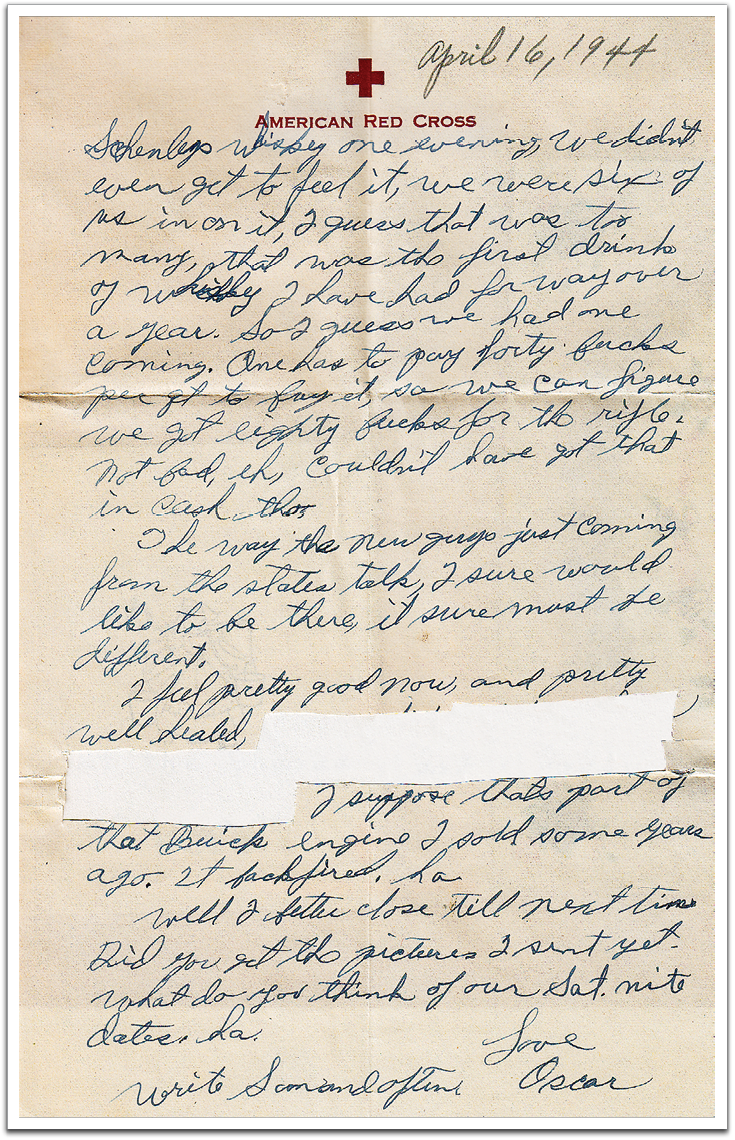 April 16, 1944
AMERICAN RED CROSS
Schenleys whisky one evening, we didn't
even get to feel it, we were six of
us in on it, I guess that was too
many, that was the first drink
of whisky I have had for way over
a year. So I guess we had one
coming. One has to pay forty bucks
per qt to buy it, so we can figure
we got eighty bucks for the rifle.
not bad, eh, couldn't have got that
in cash tho
The way the new guys just coming
from the states talk, I sure would
like to be there, it sure must be
different.
I feel pretty good now, and pretty
well healed,
I suppose thats part of
that Buick engine I sold some years
ago. It backfired. ha
well I better close till next time
Did you get the pictures I sent yet.
what do you think of our Sat. nite
dates. ha.
Love
Oscar
write soon and often.